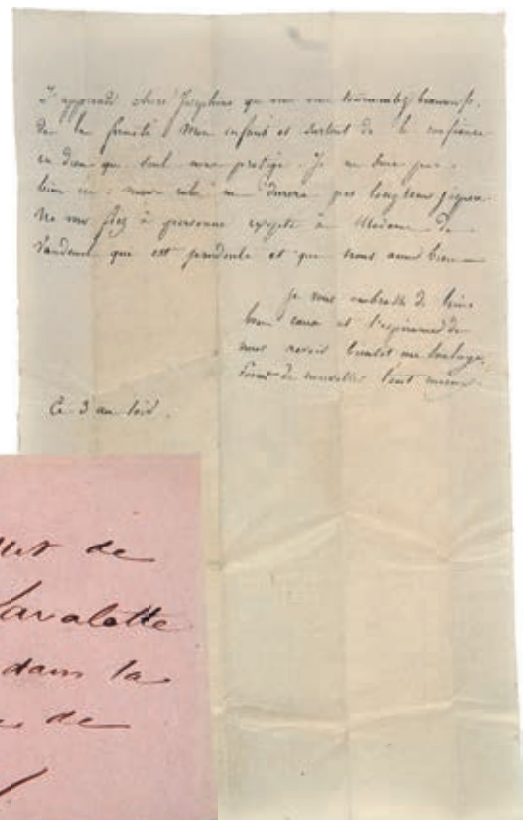 J'apprends chère Joséphine que vous vous tourmentez beaucoup,
de la fermeté mon enfant et surtout de la confiance
en dieu que seul nous protège. Je ne suis pas
bien ici; mais cela ne durera pas longtems j'espère.
Ne vous fiez à personne excepté à Madame de
Vaudemont que est prudente et que vous aime bien
je vous embrasse de
bien coeur et l'espérance de
vous revoir bientot me soulage,
de nouvelles
Ce 3 au soir.
de
Lavalette
dans la
de